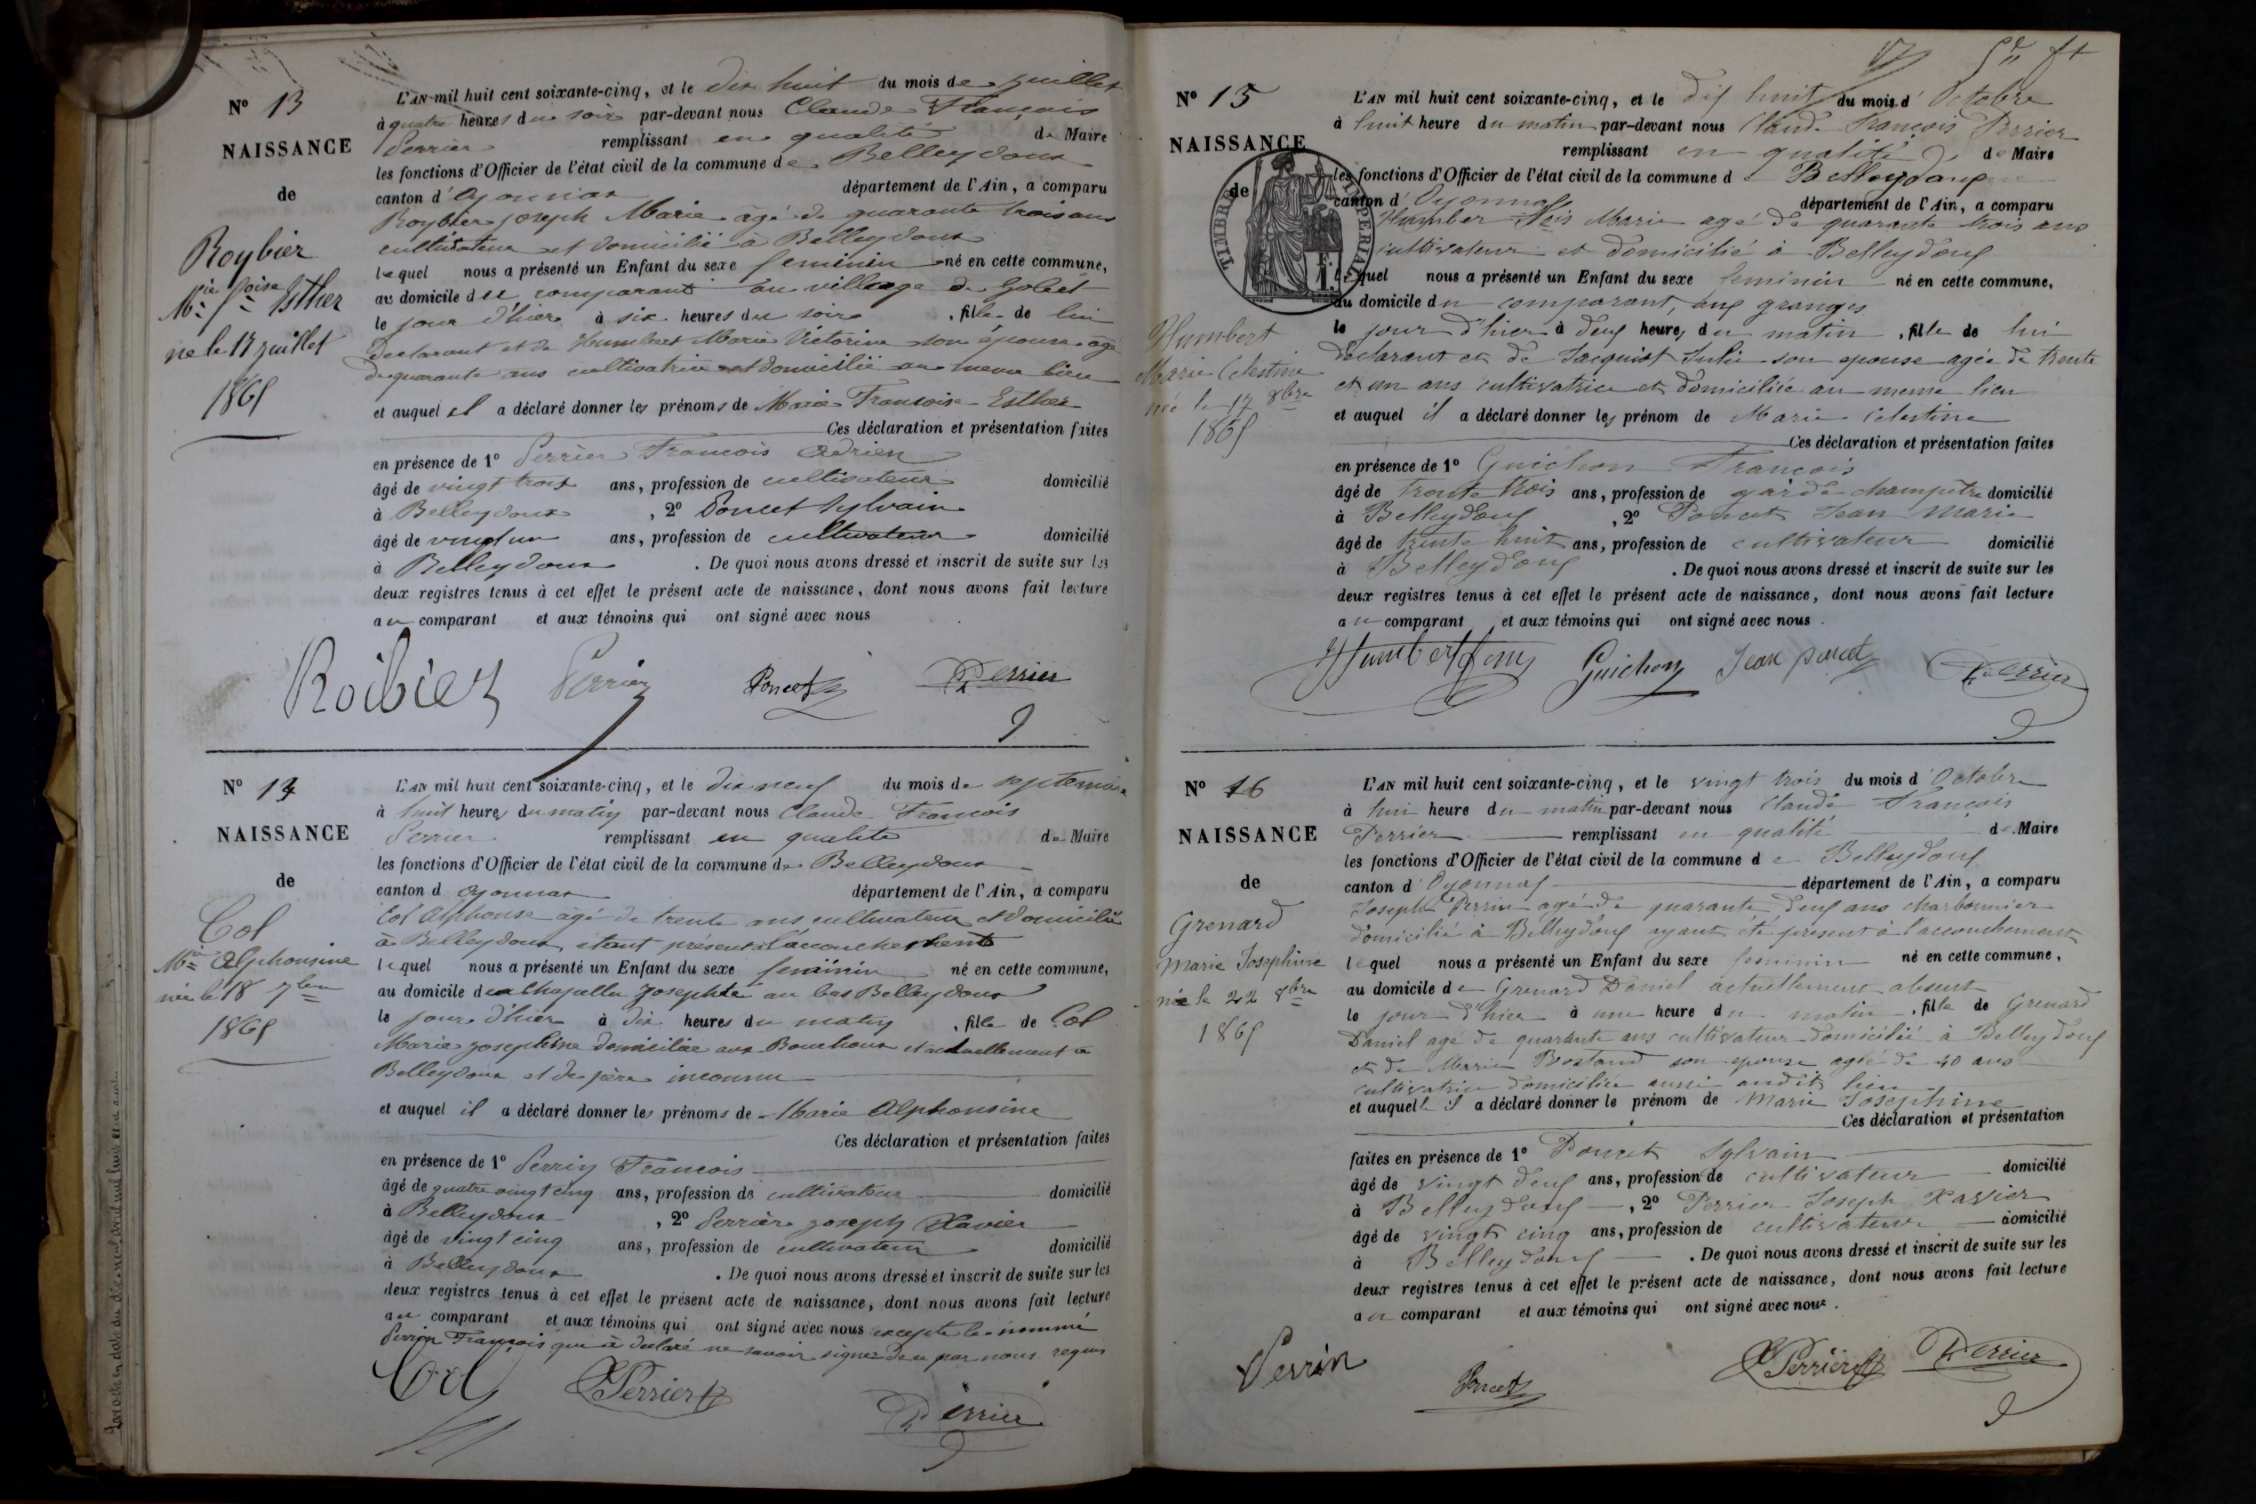 N° 13
NAISSANCE
de
Roybier
Mie Foise Esther
née le 17 juillet
1865
L'AN mil huit cent soixante-cinq, et le dix huit du mois de juillet
à quatre heures du soir par-devant nous Claude François
Perrier remplissant en qualité de Maire
les fonctions d'Officier de l'état civil de la commune de Belleydoux
canton d'Oyonnax département de l'Ain, a comparu
Roybier joseph Marie âgé de quarante trois ans
cultivateur et domicilié à Belleydoux
lequel nous a présenté un Enfant du sexe feminin né en cette commune,
au domicile du comparant au village de Gobet
le jour d'hier à six heures du soir, fille de lui
declarant et de Humbert Marie Victorine son épouse agé
de quarante ans cultivatrice et domicilié au meme lieu
et auquel il a déclaré donner les prénoms de Marie Francoise Esther
Ces déclaration et présentation faites
en présence de 1° Perrier Francois Adrien
âgé de vingt trois ans, profession de cultivateur domicilié
à Belleydoux, 2° Poncet Sylvain
âgé de vingt un ans, profession de cultivateur domicilié
à Belleydoux. De quoi nous avons dressé et inscrit de suite sur les
deux registres tenus à cet effet le présent acte de naissance, dont nous avons fait lecture
au comparant et aux témoins qui ont signé avec nous
Roibier Perrier Poncet Perrier
N° 14
NAISSANCE
de
Col
Mie Alphonsine
née le 18 7bre
1865
L'AN mil huit cent soixante-cinq, et le dix neuf du mois de septembre
à huit heures du matin par-devant nous Claude François
Perrier remplissant en qualité de Maire
les fonctions d'Officier de l'état civil de la commune de Belleydoux
canton d Oyonnax département de l'Ain, a comparu
Col Alphonse âgé de trente ans cultivateur et domicilié
à Belleydoux étant présent à l'accouchement
lequel nous a présenté un Enfant du sexe feminin né en cette commune,
au domicile de Chapellu Josephte au bas Belleydoux
le jour d'hier à dix heures du matin, fille de Col
Marie josephine domiciliée aux Bouchoux et actuellement a
Belleydoux et de père inconnu
et auquel il a déclaré donner les prénoms de Marie Alphonsine
Ces déclaration et présentation faites
en présence de 1° Perrin Francois
âgé de quatre vingt cinq ans, profession de cultivateur domicilié
à Belleydoux, 2° Perrier joseph Xavier
âgé de vingt cinq ans, profession de cultivateur domicilié
à Belleydoux. De quoi nous avons dressé et inscrit de suite sur les
deux registres tenus à cet effet le présent acte de naissance, dont nous avons fait lecture
au comparant et aux témoins qui ont signé avec nous excepté le nommé
Perrin François qui à declaré ne savoir signer de ce par nous requis
Col Perrier Perrier
N° 15
NAISSANCE
de
TIMBRE IMPERIAL
Humbert
Marie Celestine
née le 17 8bre
1865
L'AN mil huit cent soixante-cinq, et le dix huit du mois d'Octobre
à huit heure du matin par-devant nous Claude François Perrier
remplissant en qualité de Maire
les fonctions d'Officier de l'état civil de la commune de Belleydoux
canton d'Oyonnax département de l'Ain, a comparu
Humber Marie agé de quarante trois ans
cultivateur et domicilié à Belleydoux
lequel nous a présenté un Enfant du sexe feminin né en cette commune,
au domicile du comparant, aux granges
le jour d'hier à deux heures du matin, fille de lui
déclarant et de Jacquiot Julie son epouse agée de trente
et un ans cultivatrice et domiciliée au meme lieu
et auquel il a déclaré donner les prénom de Marie Celestine
Ces déclaration et présentation faites
en présence de 1° Guichon François
âgé de trente trois ans, profession de garde champêtre domicilié
à Belleydoux, 2° Poncet Jean Marie
âgé de trente huit ans, profession de cultivateur domicilié
à Belleydoux. De quoi nous avons dressé et inscrit de suite sur les
deux registres tenus à cet effet le présent acte de naissance, dont nous avons fait lecture
au comparant et aux témoins qui ont signé avec nous.
Humbert Guichon Jean poncet Perrier
N° 16
NAISSANCE
de
Grenard
Marie Josephine
née le 22 8bre
1865
L'AN mil huit cent soixante-cinq, et le vingt trois du mois d'Octobre
à huit heure du matin par-devant nous Claude François
Perrier remplissant en qualité de Maire
les fonctions d'Officier de l'état civil de la commune de Belleydoux
canton d'Oyonnax département de l'Ain, a comparu
Joseph Perrin agé de quarante deux ans charbonnier
domicilié à Belleydoux ayant été present à l'accouchement
lequel nous a présenté un Enfant du sexe feminin né en cette commune,
au domicile de Grenard Daniel actuellement absent
le jour d'hier à une heure du matin, fille de Grenard
Daniel agé de quarante ans cultivateur domicilié à Belleydoux
et de Marie Rostand son epouse agée de 40 ans
cultivatrice domiciliée aussi audit lieu
et auquel il a déclaré donner le prénom de Marie Josephine
Ces déclaration et présentation
faites en présence de 1° Poncet Sylvain
âgé de vingt deux ans, profession de cultivateur domicilié
à Belleydoux, 2° Perrier Joseph Xavier
âgé de vingt cinq ans, profession de cultivateur domicilié
à Belleydoux. De quoi nous avons dressé et inscrit de suite sur les
deux registres tenus à cet effet le présent acte de naissance, dont nous avons fait lecture
au comparant et aux témoins qui ont signé avec nous.
Perrin Poncet Perrier Perrier